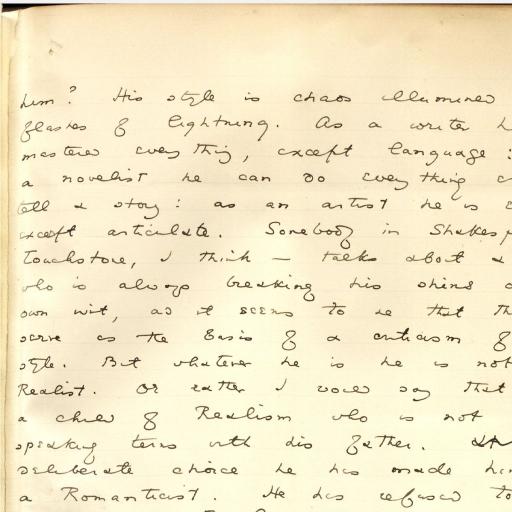 him? His style is chaos illumined
flashes of lightning. As a writer h
mastered every thing, except language:
a novelist he can do every thing
tell a story: as an artist he is
except articulate. Somebody in Shakesp
Touchstone, I think — talks about a
who is always breaking his shins
own wit, and it seems to me that th
serve as the basis of a criticism of
style. But whatever he is he is not
Realist. Or rather I would say that
a child of Realism who is not
speaking terms with his father.
deliberate choice he has made him
a Romanticist. He has refused to